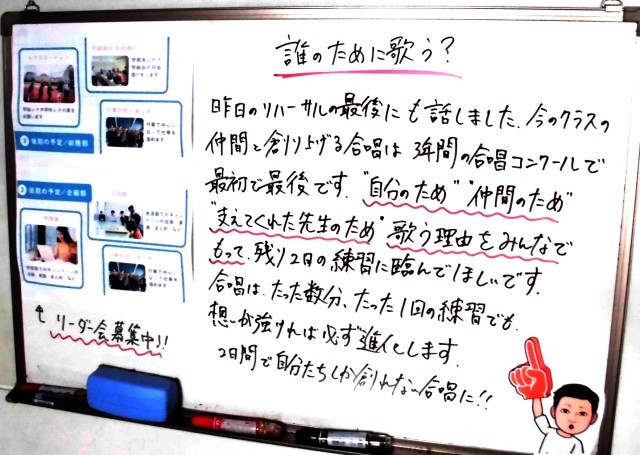 誰のために歌う?
昨日のリハーサルの最後にも話しました。今のクラスの
仲間と創り上げる合唱は3年間の合唱コンクールで
最初で最後です。"自分のため" "仲間のため"
"支えてくれた先生のため" 歌う理由をみんなで
もって、残り2日の練習に臨んでほしいです。
合唱は、たった数分、たった1回の練習でも、
想いが強ければ必ず進化します。
2日間で自分たちしか創れない合唱に!!
3 後期の予定/総務部
2 後期の予定/企画部
↑ リーダー会募集中!!